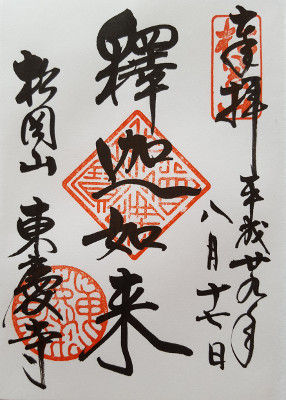 奉拝
平成廿九年
八月十七日
釋迦如来
松岡山 東慶寺